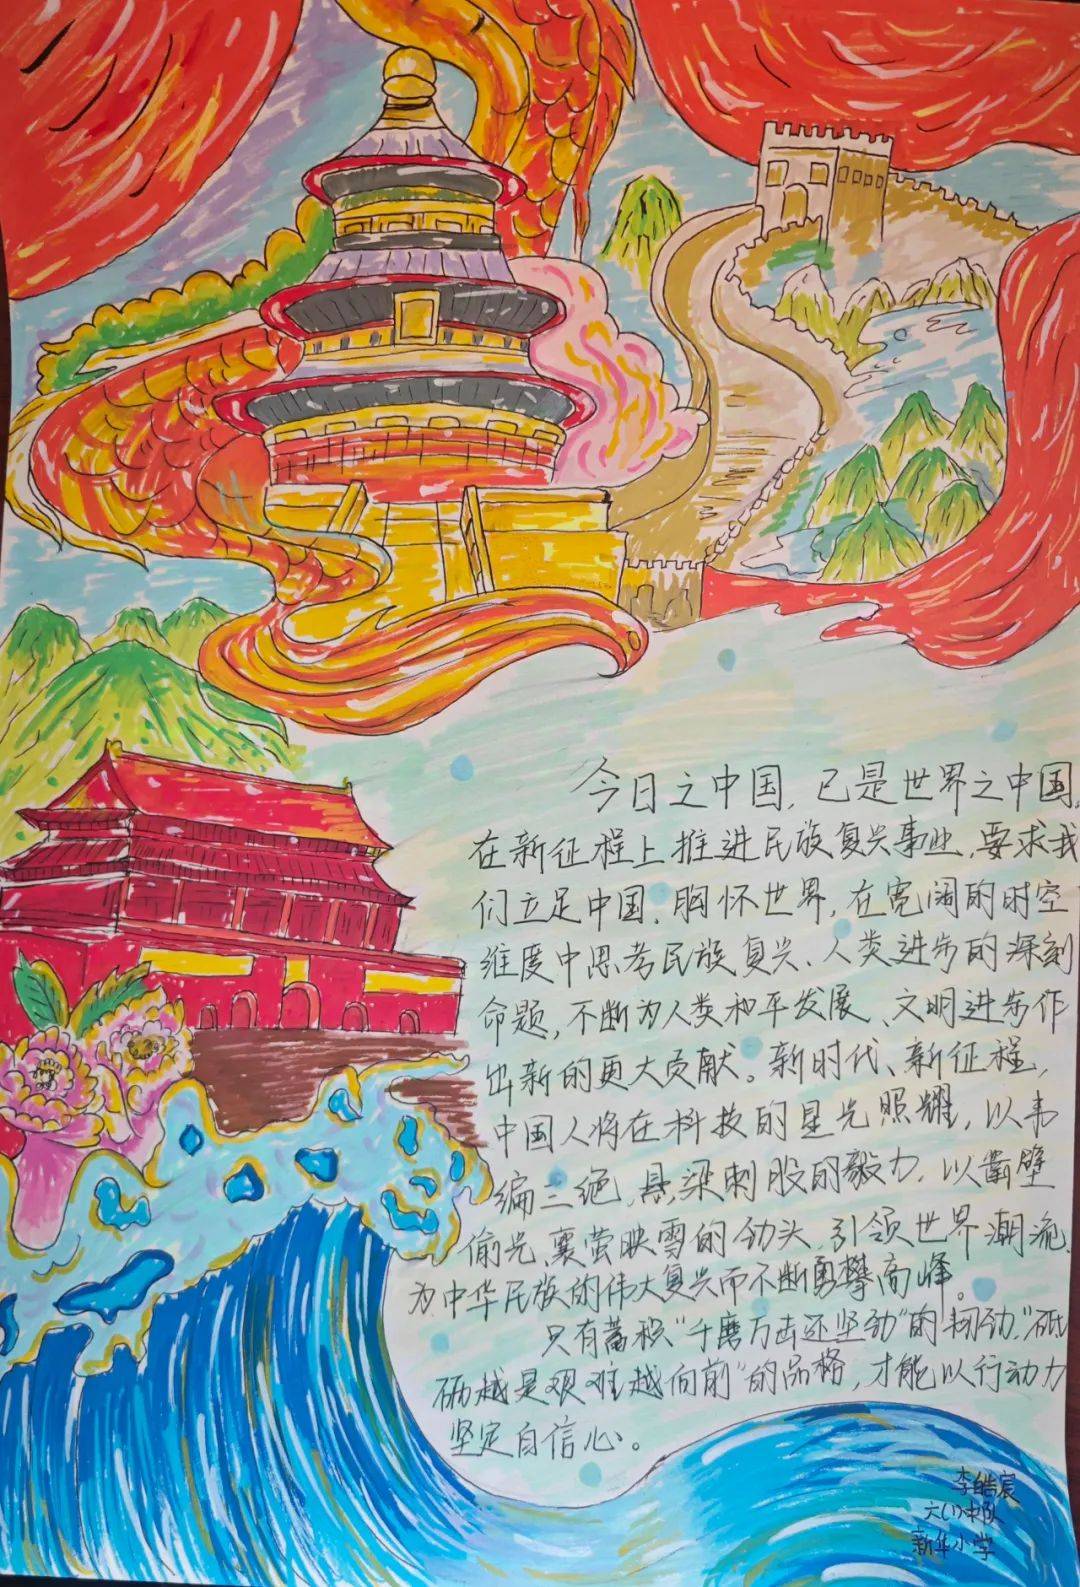 今日之中国，已是世界之中国，
在新征程上推进民族复兴事业，要求我
们立足中国、胸怀世界，在宽阔的时空
维度中思考民族复兴、人类进步的深刻
命题，不断为人类和平发展、文明进步作
出新的更大贡献。新时代、新征程，
中国人将在科技的星光照耀，以韦
编三绝，悬梁刺股的毅力，以凿壁
偷光、囊萤映雪的劲头，引领世界潮流，
为中华民族的伟大复兴而不断勇攀高峰。
只有蓄积“千磨万击还坚劲”的韧劲，“砥
砺越是艰难越向前”的品格，才能以行动力
坚定自信心。
李皓宸
六(1)中队
新华小学